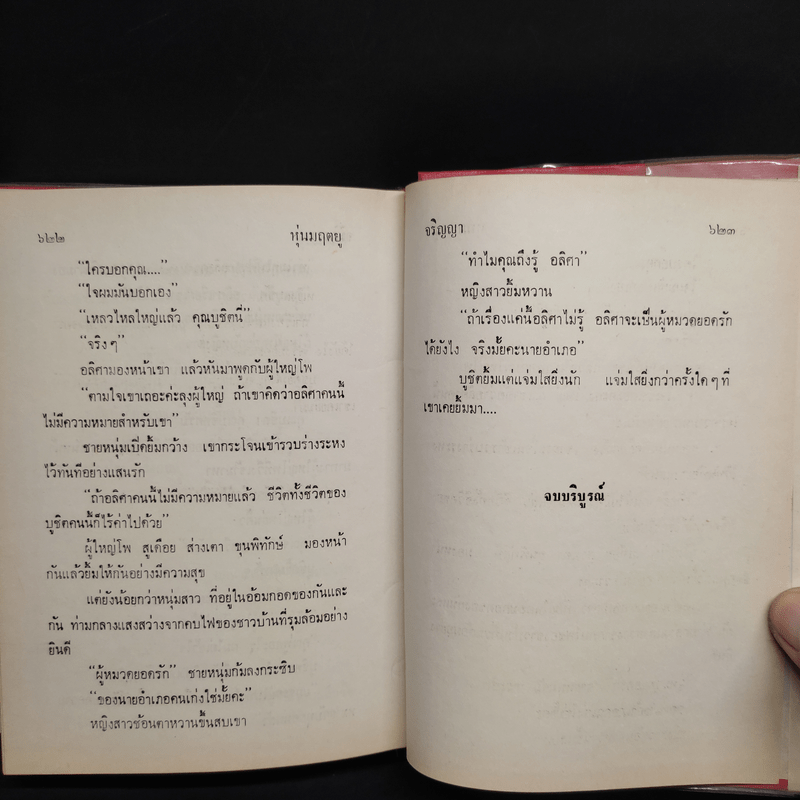 ๖๒๒ หุ่นมฤตยู
"ใครบอกคุณ...."
"ใจผมมันบอกเอง"
"เหลวไหลใหญ่แล้ว คุณบูชิตนี่"
"จริงๆ"
อลิศามองหน้าเขา แล้วหันมาพูดกับผู้ใหญ่โพ
"ตามใจเขาเถอะค่ะลุงผู้ใหญ่ ถ้าเขาคิดว่าอลิศาคนนี้
ไม่มีความหมายสำหรับเขา"
ชายหนุ่มเปิดยิ้มกว้าง เขากระโจนเข้ารวบร่างระหง
ไว้ทันทีอย่างแสนรัก
"ถ้าอลิศาคนนี้ไม่มีความหมายแล้ว ชีวิตทั้งชีวิตของ
บูชิตคนนี้ก็ไร้ค่าไปด้วย"
ผู้ใหญ่โพ สูเดือย ส่างเตา ขุนพิทักษ์ มองหน้า
กันแล้วยิ้มให้กันอย่างมีความสุข
แต่ยังน้อยกว่าหนุ่มสาว ที่อยู่ในอ้อมกอดของกันและ
กัน ท่ามกลางแสงสว่างจากคบไฟของชาวบ้านที่รุมล้อมอย่าง
ยินดี
"ผู้หมวดยอดรัก" ชายหนุ่มก้มลงกระซิบ
"ของนายอำเภอคนเก่งใช่มั้ยคะ"
หญิงสาวช้อนตาหวานขึ้นสบเขา
จริญญา ๖๒๓
"ทำไมคุณถึงรู้ อลิศา"
หญิงสาวยิ้มหวาน
"ถ้าเรื่องแค่นี้อลิศาไม่รู้ อลิศาจะเป็นผู้หมวดยอดรัก
ได้ยังไง จริงมั้ยคะนายอำเภอ"
บูชิตยิ้มแต่แจ่มใสยิ่งนัก แจ่มใสยิ่งกว่าครั้งใดๆที่
เขาเคยยิ้มมา....
จบบริบูรณ์